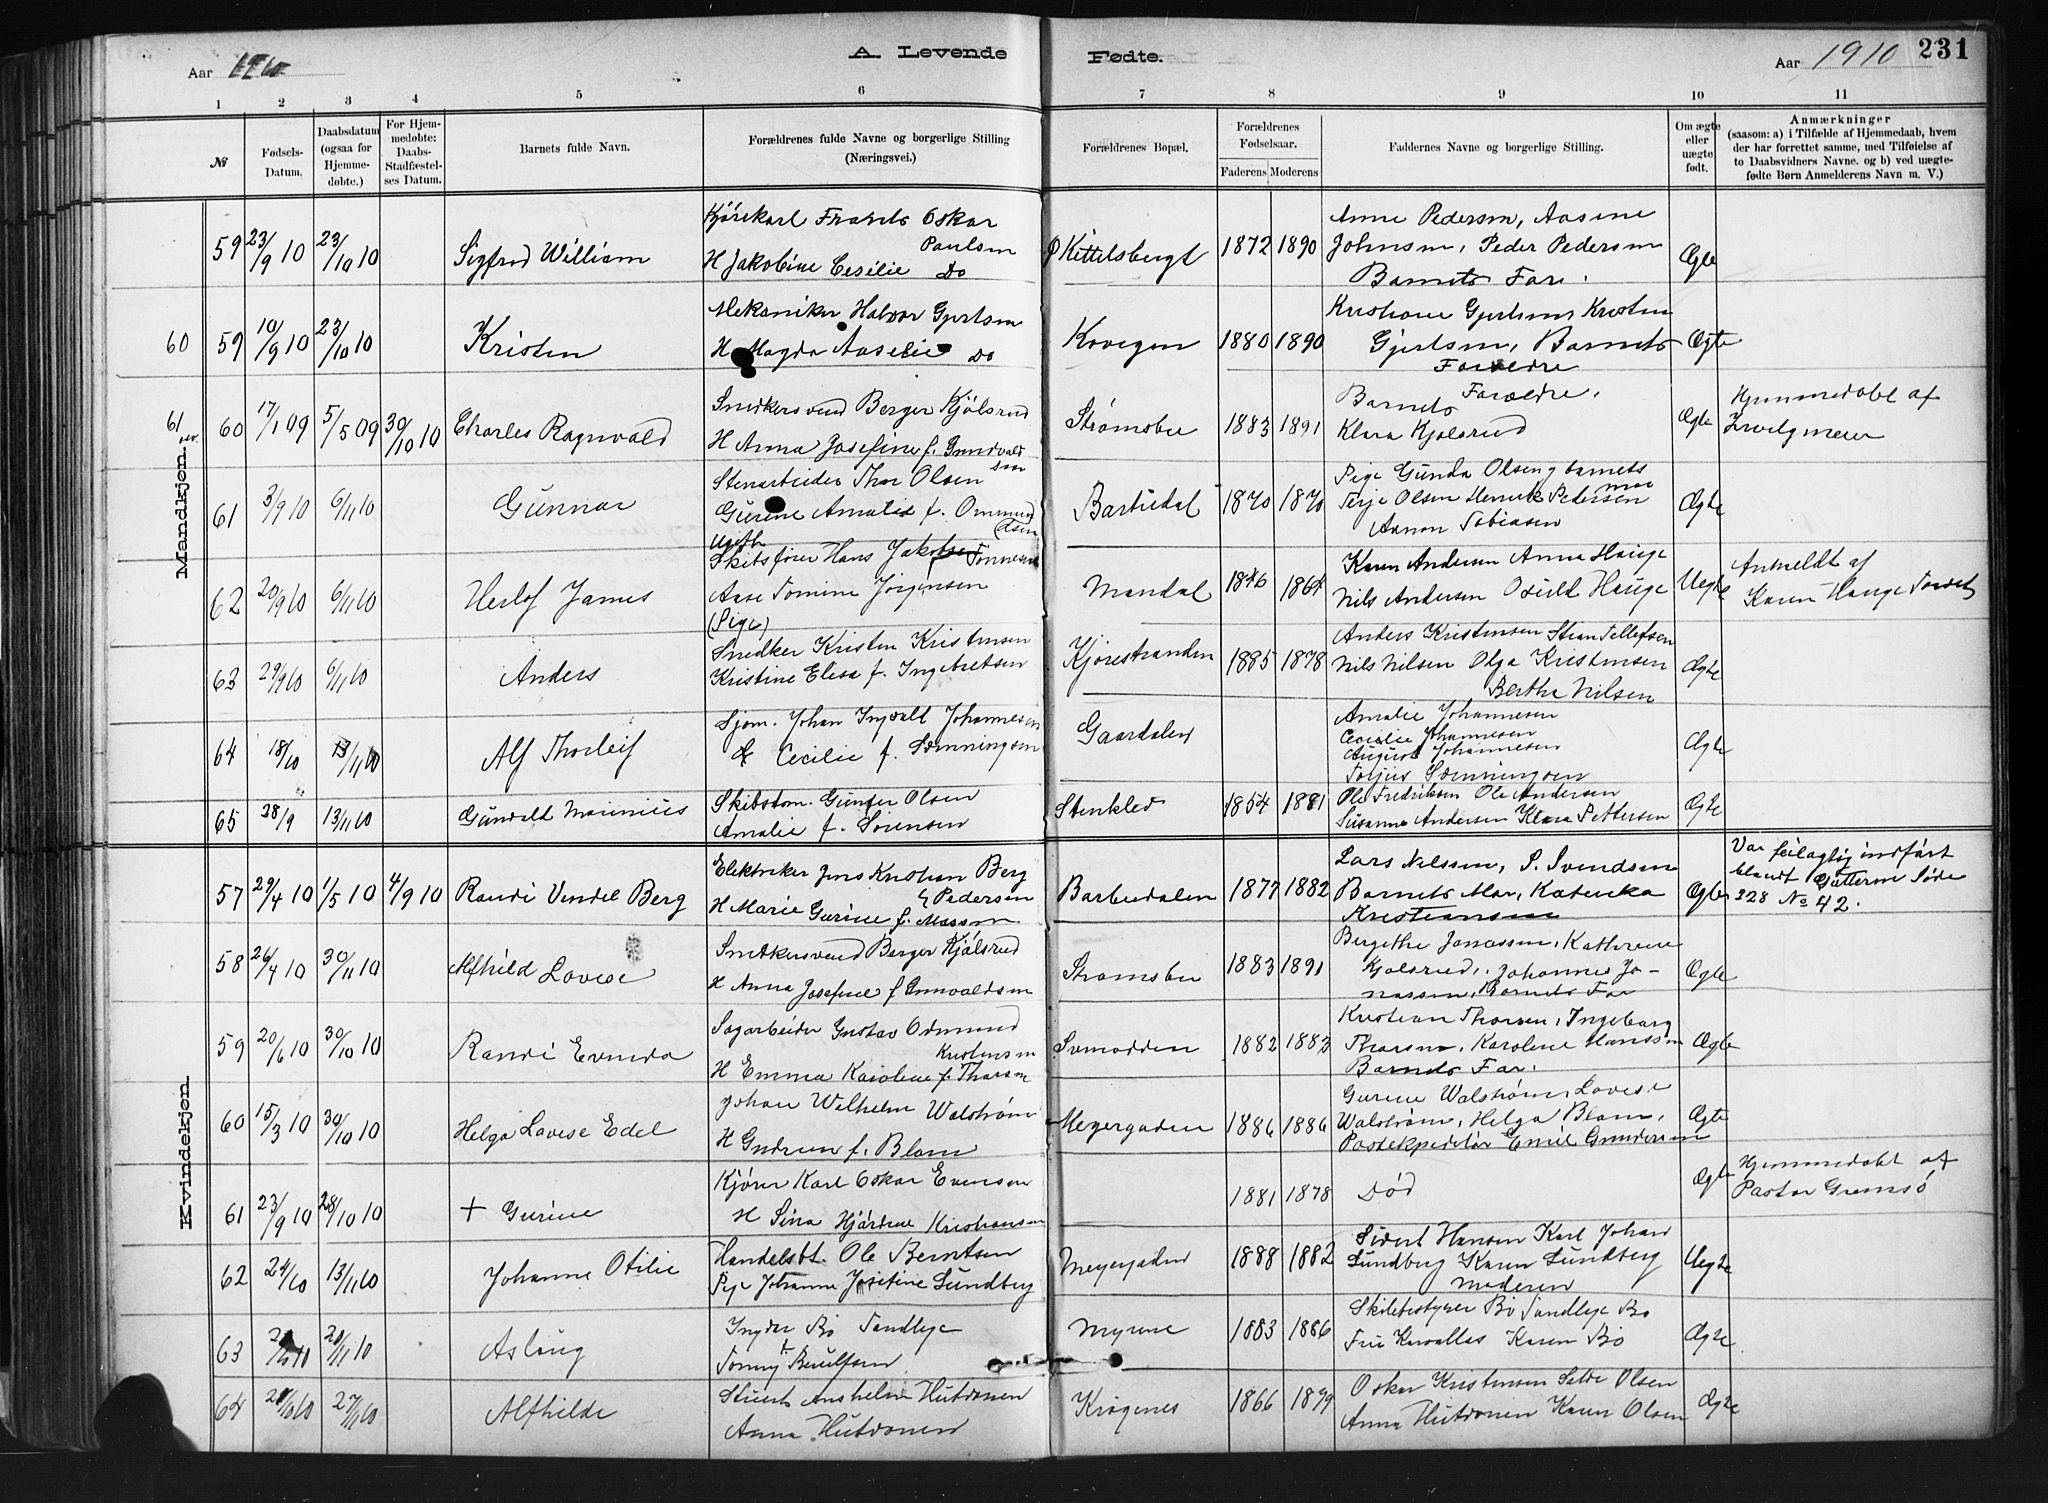 A. Levende Fødte.
Aar 1910
Aar 1910
231
1 2 3 4 5 6 7 8 9 10 11
№
Fødsels-Datum.
Daabsdatum (ogsaa for Hjemmedøbte.)
For Hjemmedøbte: Daabs-Stadfæstelses Datum.
Barnets fulde Navn.
Forældrenes fulde Navne og borgerlige Stilling (Næringsvei.)
Forældrenes Bopæl.
Forældrenes Fødselsaar.
Faderens Moderens
Faddernes Navne og borgerlige Stilling.
Om ægte eller uægte født.
Anmærkninger (saasom: a) i Tilfælde af Hjemmedaab, hvem der har forrettet samme, med Tilføielse af to Daabsvidners Navne. og b) ved uægtefødte Børn Anmelderens Navn m. V.)
Mandkjøn.
59 23/9 10 23/10 10 Sigfred William
Kjørekarl Frants Oskar Paulsen
H Jakobine Cesilie Do
Kittelsbergt 1872 1890
Anne Pedersen, Aasene
Johnsen, Peder Pedersen
Barnets Far.
Ægte
60 59 10/9 10 23/10 10 Kristen
Mekaniker Halvor Gjertsen
H Magda Aaselie Do
Kovegen 1880 1890
Kristiane Gjertsen, Kristen
Gjertsen, Barnets
Forældre
Ægte
61 60 17/1 09 5/5 09 30/10 10 Charles Ragnvald
Snedkersvend Berger Kjølsrud
H Anna Josefine f. Gunvaldsen
Strømsbu 1883 1891
Barnets Forældre,
Klara Kjølsrud
Ægte
Hjemmedøbt af
61 3/9 10 6/11 10 Gunnar
Stenarbeider Thor Olsen
Gurine Amalie f. Ommundsen
Barbudal 1870 1870
Pige Gunda Olsen, barnets mor
Terje Olsen Henrik Petersen
Aanon Tobiasen
Ægte
62 20/9 10 6/11 10 Herlof James
Ugift
Skibsfører Hans Jakob Tønnesen
Aase Tomine Jørgensen
(Pige)
Mandal 1876 1864
Karen Andersen Anna Hauge
Nils Andersen Osuld Hauge
Uegte
Anmeldt af
Karen Hauge Torvet
63 29/9 10 6/11 10 Anders
Snedker Kristen Kristensen
Kristine Elisa f. Ingebretsen
Kjørestranden 1885 1878
Anders Kristensen Stian Tellefsen
Nils Nilsen Olga Kristensen
Bertha Nilsen
Ægte
64 18/10 13/11 10 Alf Thorleif
Sjøm. Johan Ingvalt Johannesen
& Cecilie f. Lønningsen
Gaardalen
Amalie Johannesen
Cecilie Johannesen
August Johannesen
Torjus Lønningsen
Ægte
65 28/9 13/11 10 Gunvald Marinius
Skibstøm. Gunder Olsen
Amalie f. Sørensen
Stenklev 1854 1881
Ole Fredriksen Ole Andersen
Susanne Andersen Klara Pettersen
Ægte
Kvindekjøn.
57 29/4 10 1/5 10 4/9 10 Randi Vendel Berg
Elektriker Jens Kristian Berg Pedersen
H Marie Gurine f. Massen
Barbudalen 1877 1882
Lars Nilssen, P. Svendsen
Barnets Mor, Katinka
Kristiansen
Ægte
Var feilagtig indført
blandt Gutterne Side
228 No 42.
58 26/4 10 30/11 10 Alfhild Lovise
Snedkersvend Berger Kjølsrud
H Anna Josefine f Gunvaldsen
Strømsbu 1883 1891
Bergithe Jonassen, Kathrine
Kjølsrud, Johannes Jo-
nassen, Barnets Far
Ægte
59 20/6 10 30/10 10 Randi Evenda
Sagarbeider Gustav Odmund Kristensen
H Emma Karoline f. Thorsen
Svinodden 1882 1883
Kristian Thorsen, Ingeborg
Thorsen, Karoline Hanssen
Barnets Far.
Ægte
60 15/3 10 30/10 10 Helga Lovise Edel
Johan Wilhelm Walstrøm
H Gudrun f. Blom
Meyergaden 1886 1886
Gurine Walstrøm, Lovise
Walstrøm, Helga Blom,
Postekspeditør Emil Gundersen
Ægte
61 23/9 10 28/10 10 + Gurine
Kjører Karl Oskar Evensen
H Sina Hjørdine Kristiansen
1881 1878
Død
Ægte
Hjemmedøbt af
Pastor Gremsø
62 24/10 13/11 10 Johanne Otilie
Handelsbt. Ole Berntsen
Pige Johanne Josefine Lundberg
Meyergaden 1888 1882
Sivert Hansen Karl Johan
Lundberg Karen Lundberg
Moderen
Uegte
63 20/11 10 Aslaug
Yngvar Bø Tandlæge
Tommy Beruldsen
Myrene 1883 1886
Skolebestyrer Bø Tandlæge Bø
Fru Karen Bø
Ægte
64 27/11 10 Alfhilde
Stuert Anshelm Hutvonen
Anna Hutvonen
Krøgenes 1866 1879
Oskar Kristensen Olsen
Anna Hutvonen Karen Olsen
Ægte